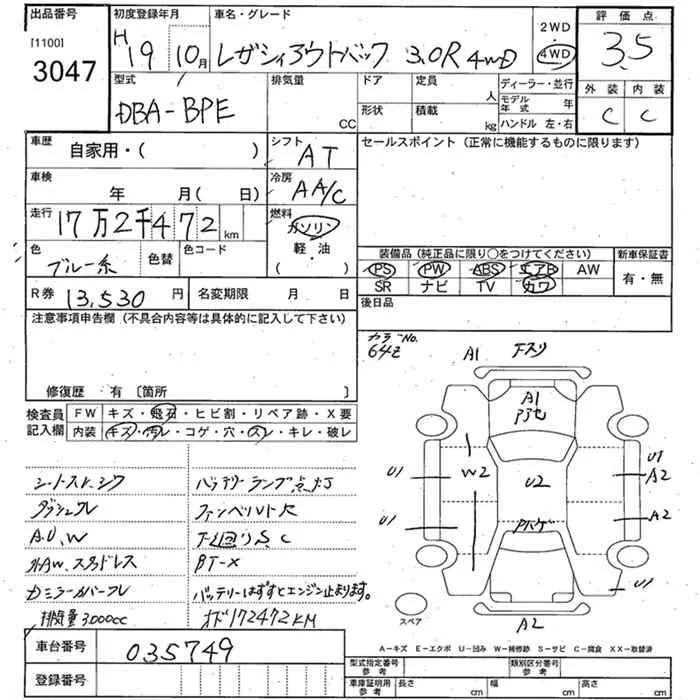 出品番号
[1100]
3047
初度登録年月
H 19 10月
車名・グレード
レガシィアウトバック 3.0R 4WD
2WD
・
4WD
評価点
3.5
外装 内装
C C
型式
DBA-BPE
排気量
CC
ドア
形状
定員
人
積載
kg
ディーラー・並行
モデル年式 年
ハンドル 左・右
車歴
自家用・( )
シフト
AT
セールスポイント (正常に機能するものに限ります)
車検
年 月( 日)
冷房
AA/C
走行
17万2千472km
燃料
ガソリン
軽・油
( )
色
ブルー系
色替
色コード
装備品(純正品に限り○をつけてください)
PS PW ABS エアB AW
SR ナビ TV カワ
新車保証書
有・無
R券 13,530円
名変期限 月 日
後日品
注意事項申告欄(不具合内容等は具体的に記入して下さい)
修復歴 有〔箇所 〕
カラーNo.
64Z
検査員
記入欄
FW キズ・飛石・ヒビ割・リペア跡・X要
内装 キズ・汚レ・コゲ・穴・スレ・キレ・破レ
シートスレ、シワ
ダッシュフレ
A.U,W
外AW.スタッドレス
Dミラーカバーフレ
排気量3000cc
バッテリーランプ点灯
ファンベルト欠
下廻りS、C
バッテリーはずすとエンジン止まります。
オド172472KM
A1 下スリ
A1
U1
W2
U2
U1
A2
U1
A2
U1
A2
スペア
A-キズ E-エクボ U-凹み W-補修跡 S-サビ C-腐食 XX-取替済
車台番号
035749
登録番号
型式指定番号
参考
類別区分番号
参考
車庫証明用
参考
長さ cm
幅 cm
高さ cm